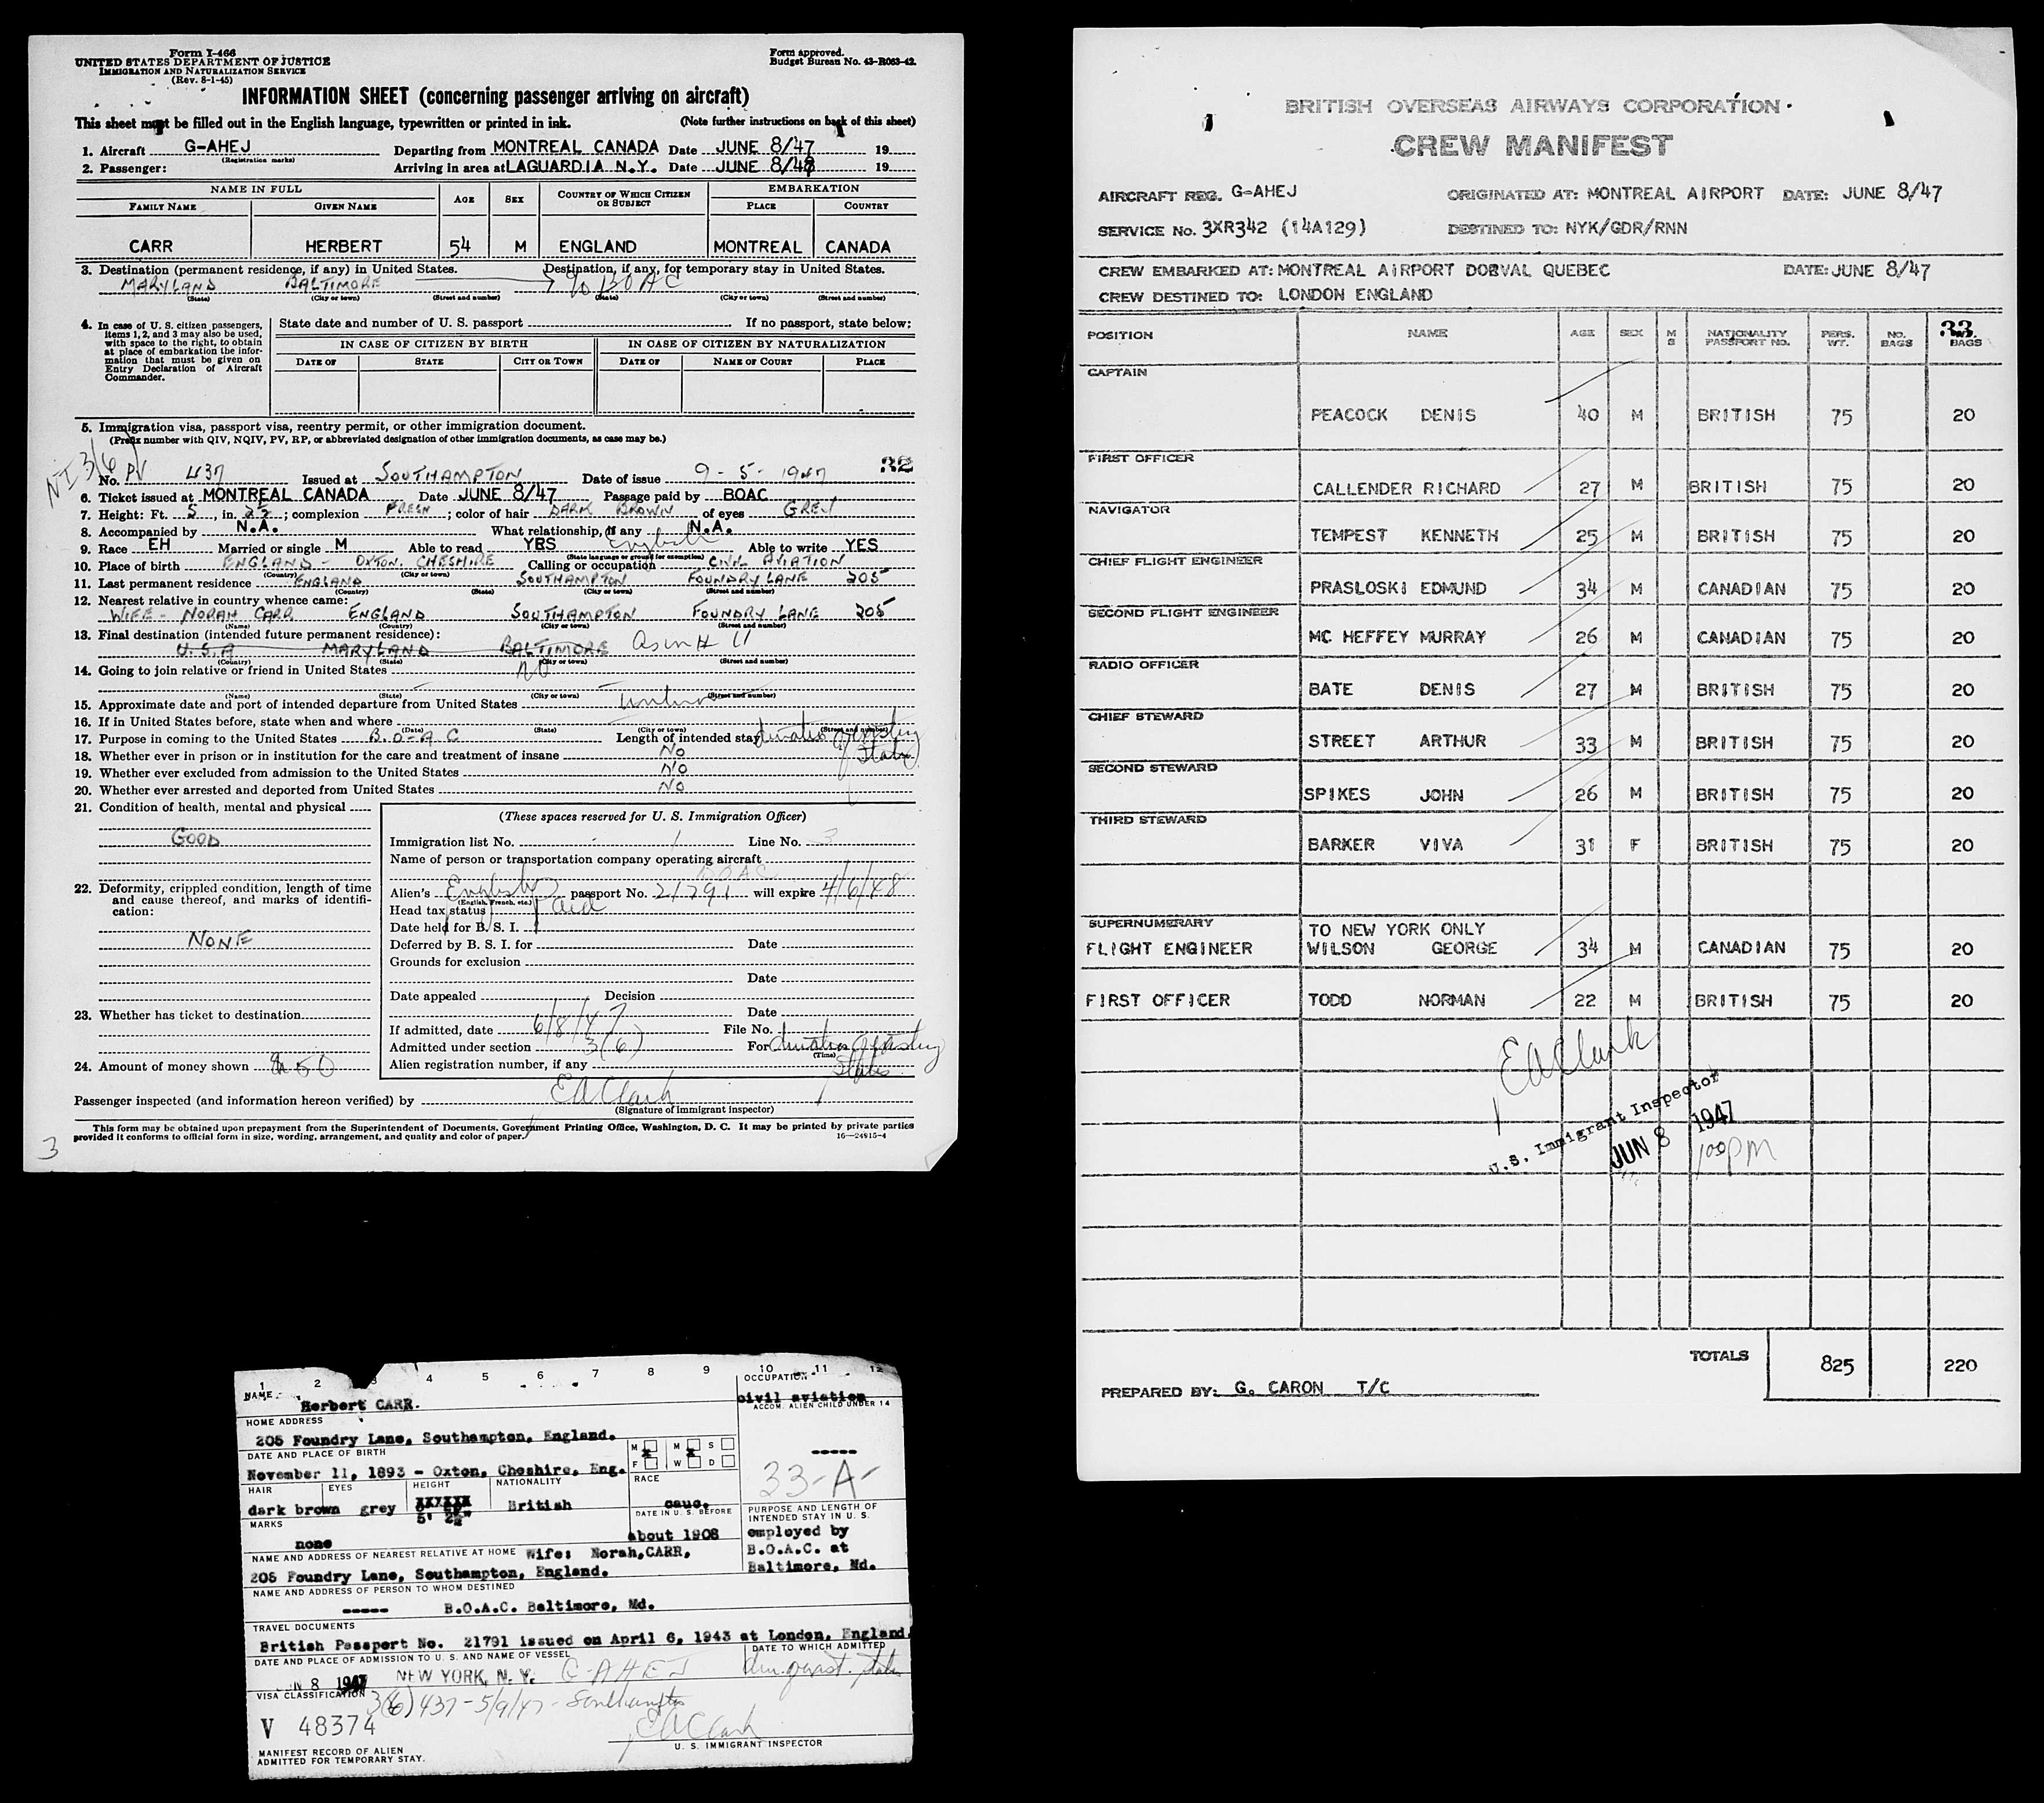 Form I-466
UNITED STATES DEPARTMENT OF JUSTICE
IMMIGRATION AND NATURALIZATION SERVICE
(Rev. 8-1-45)
Form approved.
Budget Bureau No. 43-R063-42.
INFORMATION SHEET (concerning passenger arriving on aircraft)
This sheet must be filled out in the English language, typewritten or printed in ink. (Note further instructions on back of this sheet)
1. Aircraft G-AHEJ Departing from MONTREAL CANADA Date JUNE 8/47 19
(Registration marks)
2. Passenger: Arriving in area at LAGUARDIA N.Y. Date JUNE 8/47 19
NAME IN FULL AGE SEX COUNTRY OF WHICH CITIZEN OR SUBJECT EMBARKATION
FAMILY NAME GIVEN NAME PLACE COUNTRY
CARR HERBERT 54 M ENGLAND MONTREAL CANADA
3. Destination (permanent residence, if any) in United States. Destination, if any, for temporary stay in United States.
MARYLAND BALTIMORE % BOAC
(State) (City or town) (Street and number) (State) (City or town) (Street and number)
4. In case of U. S. citizen passengers, items 1, 2, and 3 may also be used, with space to the right, to obtain at place of embarkation the information that must be given on Entry Declaration of Aircraft Commander.
State date and number of U. S. passport If no passport, state below:
IN CASE OF CITIZEN BY BIRTH IN CASE OF CITIZEN BY NATURALIZATION
DATE OF STATE CITY OR TOWN DATE OF NAME OF COURT PLACE
5. Immigration visa, passport visa, reentry permit, or other immigration document.
(Prefix number with QIV, NQIV, PV, RP, or abbreviated designation of other immigration documents, as case may be.)
3(6)
No. PV 437 Issued at SOUTHAMPTON Date of issue 9-5-1947 32
6. Ticket issued at MONTREAL CANADA Date JUNE 8/47 Passage paid by BOAC
7. Height: Ft. 5, in. 2½; complexion FRESH; color of hair DARK BROWN of eyes GREY
8. Accompanied by N.A. What relationship, if any N.A.
9. Race EH Married or single M Able to read YES English Able to write YES
(State language or ground for exemption)
10. Place of birth ENGLAND - OXTON, CHESHIRE Calling or occupation CIVIL AVIATION
(Country) (City or town)
11. Last permanent residence ENGLAND SOUTHAMPTON FOUNDRY LANE 205
(Country) (State) (City or town) (Street and number)
12. Nearest relative in country whence came:
WIFE - NORAH CARR ENGLAND SOUTHAMPTON FOUNDRY LANE 205
(Name) (Country) (City or town) (Street and number)
13. Final destination (intended future permanent residence):
U.S.A MARYLAND BALTIMORE as in # 11
(Country) (State) (City or town) (Street and number)
14. Going to join relative or friend in United States NO
(Name) (State) (City or town) (Street and number)
15. Approximate date and port of intended departure from United States
16. If in United States before, state when and where
(Date) (State) (City or town) (Street and number)
17. Purpose in coming to the United States B.O.A.C Length of intended stay duration of existing status
18. Whether ever in prison or in institution for the care and treatment of insane No
19. Whether ever excluded from admission to the United States NO
20. Whether ever arrested and deported from United States No
21. Condition of health, mental and physical
GOOD
22. Deformity, crippled condition, length of time and cause thereof, and marks of identification:
NONE
23. Whether has ticket to destination
24. Amount of money shown $ 50
(These spaces reserved for U. S. Immigration Officer)
Immigration list No. 1 Line No. 3
Name of person or transportation company operating aircraft
BOAC
Alien's English passport No. 21791 will expire 4/6/48
(English, French, etc.)
Head tax status Paid
Date held for B. S. I.
Deferred by B. S. I. for Date
Grounds for exclusion
Date
Date appealed Decision
Date
If admitted, date 6/8/47 File No.
Admitted under section 3(6) For duration of existing status
(Time)
Alien registration number, if any
Passenger inspected (and information hereon verified) by EA Clark
(Signature of immigrant inspector)
This form may be obtained upon prepayment from the Superintendent of Documents, Government Printing Office, Washington, D. C. It may be printed by private parties
provided it conforms to official form in size, wording, arrangement, and quality and color of paper. 16—24915-4
3
BRITISH OVERSEAS AIRWAYS CORPORATION
CREW MANIFEST
AIRCRAFT REG. G-AHEJ ORIGINATED AT: MONTREAL AIRPORT DATE: JUNE 8/47
SERVICE No. 3XR342 (14A129) DESTINED TO: NYK/GDR/RNN
CREW EMBARKED AT: MONTREAL AIRPORT DORVAL QUEBEC DATE: JUNE 8/47
CREW DESTINED TO: LONDON ENGLAND
33
POSITION NAME AGE SEX M S NATIONALITY PASSPORT NO. PERS. WT. NO. BAGS BAGS
CAPTAIN
PEACOCK DENIS 40 M BRITISH 75 20
FIRST OFFICER
CALLENDER RICHARD 27 M BRITISH 75 20
NAVIGATOR
TEMPEST KENNETH 25 M BRITISH 75 20
CHIEF FLIGHT ENGINEER
PRASLOSKI EDMUND 34 M CANADIAN 75 20
SECOND FLIGHT ENGINEER
MC HEFFEY MURRAY 26 M CANADIAN 75 20
RADIO OFFICER
BATE DENIS 27 M BRITISH 75 20
CHIEF STEWARD
STREET ARTHUR 33 M BRITISH 75 20
SECOND STEWARD
SPIKES JOHN 26 M BRITISH 75 20
THIRD STEWARD
BARKER VIVA 31 F BRITISH 75 20
SUPERNUMERARY TO NEW YORK ONLY
FLIGHT ENGINEER WILSON GEORGE 34 M CANADIAN 75 20
FIRST OFFICER TODD NORMAN 22 M BRITISH 75 20
EA Clark
U.S. Immigrant Inspector
JUN 8 1947
100 PM
TOTALS 825 220
PREPARED BY: G. CARON T/C
1 2 3 4 5 6 7 8 9 10 11 12
NAME Herbert CARR.
OCCUPATION civil aviation
HOME ADDRESS
205 Foundry Lane, Southampton, England.
ACCOM. ALIEN CHILD UNDER 14
-----
DATE AND PLACE OF BIRTH
November 11, 1893 - Oxton, Cheshire, Eng.
M F M W S D
33-A-
HAIR EYES HEIGHT NATIONALITY RACE
dark brown grey 5' 2½" British cauc.
MARKS
none
DATE IN U. S. BEFORE
about 1908
PURPOSE AND LENGTH OF INTENDED STAY IN U. S.
employed by
B.O.A.C. at
Baltimore, Md.
NAME AND ADDRESS OF NEAREST RELATIVE AT HOME Wife: Norah, CARR,
205 Foundry Lane, Southampton, England.
NAME AND ADDRESS OF PERSON TO WHOM DESTINED
----- B.O.A.C. Baltimore, Md.
TRAVEL DOCUMENTS
British Passport No. 21791 issued on April 6, 1943 at London, England
DATE AND PLACE OF ADMISSION TO U. S. AND NAME OF VESSEL DATE TO WHICH ADMITTED
8 1947 NEW YORK, N. Y. G-AHEJ
VISA CLASSIFICATION 3(6) 437 - 5/9/47 - Southampton
V 48374
EA Clark
U. S. IMMIGRANT INSPECTOR
MANIFEST RECORD OF ALIEN
ADMITTED FOR TEMPORARY STAY.